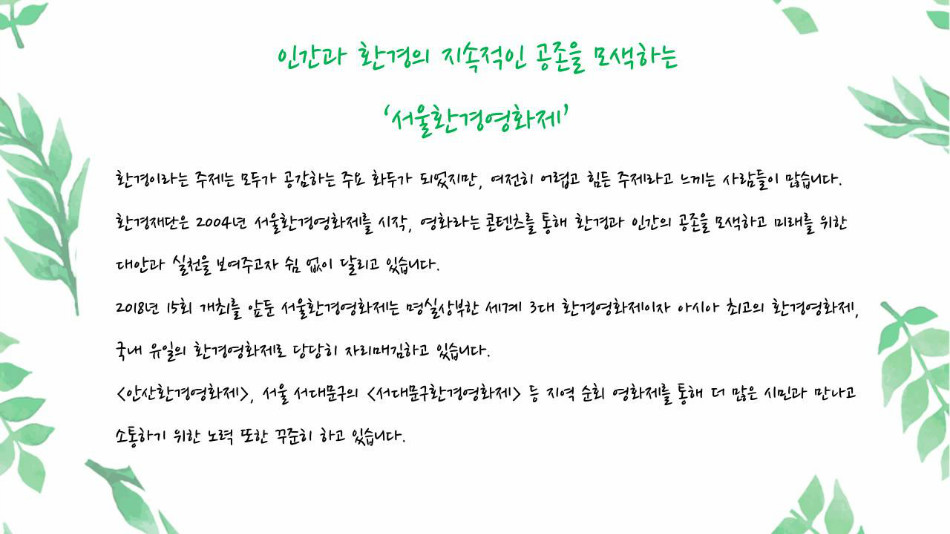 인간과 환경의 지속적인 공존을 모색하는
‘서울환경영화제’
환경이라는 주제는 모두가 공감하는 주요 화두가 되었지만, 여전히 어렵고 힘든 주제라고 느끼는 사람들이 많습니다.
환경재단은 2004년 서울환경영화제를 시작, 영화라는 콘텐츠를 통해 환경과 인간의 공존을 모색하고 미래를 위한
대안과 실천을 보여주고자 쉼 없이 달리고 있습니다.
2018년 15회 개최를 앞둔 서울환경영화제는 명실상부한 세계 3대 환경영화제이자 아시아 최고의 환경영화제,
국내 유일의 환경영화제로 당당히 자리매김하고 있습니다.
<안산환경영화제>, 서울 서대문구의 <서대문구환경영화제> 등 지역 순회 영화제를 통해 더 많은 시민과 만나고
소통하기 위한 노력 또한 꾸준히 하고 있습니다.